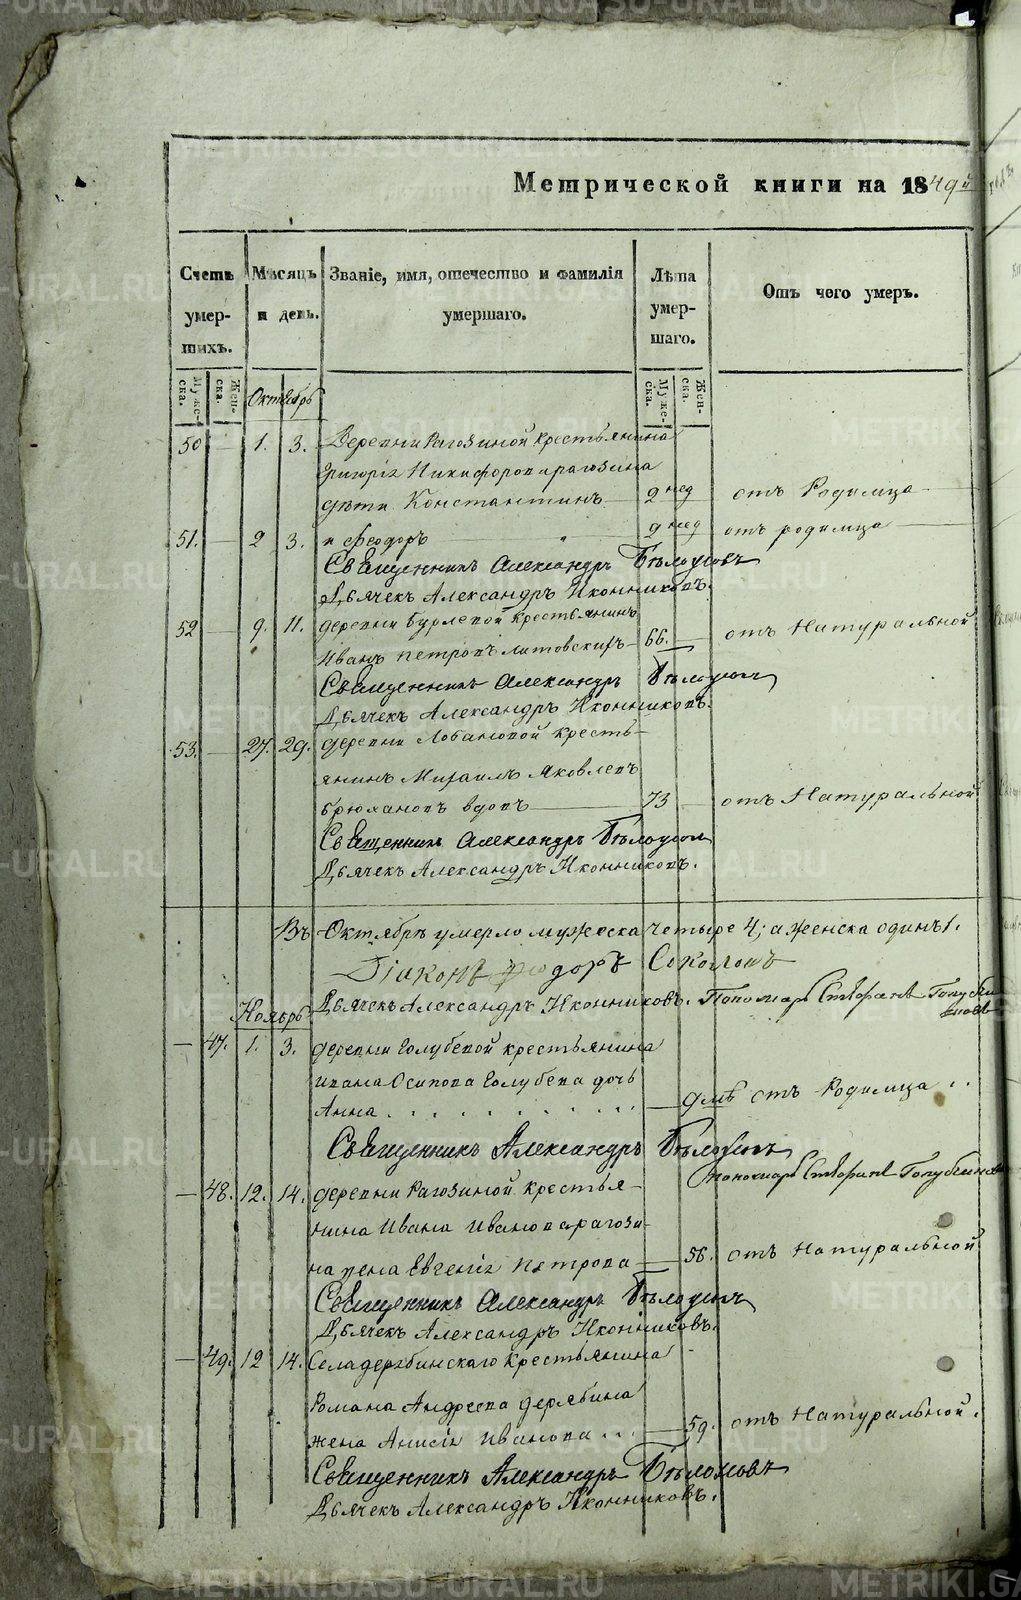 Метрической книги на 1849й
Счетъ умершихъ.
Мѣсяцъ и день.
Званіе, имя, отечество и фамилія умершаго.
Лѣта умершаго.
Отъ чего умеръ.
Мужеска.
Женска.
Мужеска.
Женска.
Октябрь
50 — 1. 3. Деревни Рагозиной крестьянина
Григорія Никифорова рагозина
дѣти Константинъ — 2 нед отъ Родимца
51. — 2 3. и Ѳеодоръ " 2 нед отъ родимца
Священникъ Александръ Бѣлоусовъ
Дьячекъ Александръ Иконниковъ.
52 — 9. 11. деревни Бурлевой крестьянинъ
Иванъ петровъ литовскихъ — 66. — отъ Натуральной
Священникъ Александръ Бѣлоусовъ
Дьячекъ Александръ Иконниковъ.
53. — 27. 29. деревни Лобановой кресть-
янинъ Михаилъ Яковлевъ
брюхановъ вдовъ — 73 — отъ Натуральной
Священникъ Александръ Бѣлоусовъ
Дьячекъ Александръ Иконниковъ.
Въ Октябрѣ умерло мужеска четыре 4; а женска одинъ 1.
Діаконъ Ѳеодоръ Соколовъ
Дьячекъ Александръ Иконниковъ. Пономарь Стефанъ
Ноябрь
— 47. 1. 3. деревни Голубевой крестьянина
ивана Осипова Голубева дочь
Анна — отъ Родимца
Священникъ Александръ Бѣлоусовъ
пономарь Стефанъ
— 48. 12. 14. деревни Рагозиной крестья-
нина Ивана Иванова рагози-
на жена Евгенія Петрова — 56. отъ Натуральной
Священникъ Александръ Бѣлоусовъ
Дьячекъ Александръ Иконниковъ.
— 49. 12 14. Села дерябинскаго крестьянина
Романа Андреева дерябина
жена Анисія Иванова — 59. отъ Натуральной.
Священникъ Александръ Бѣлоусовъ
Дьячекъ Александръ Иконниковъ.
METRIKI.GASU-URAL.RU